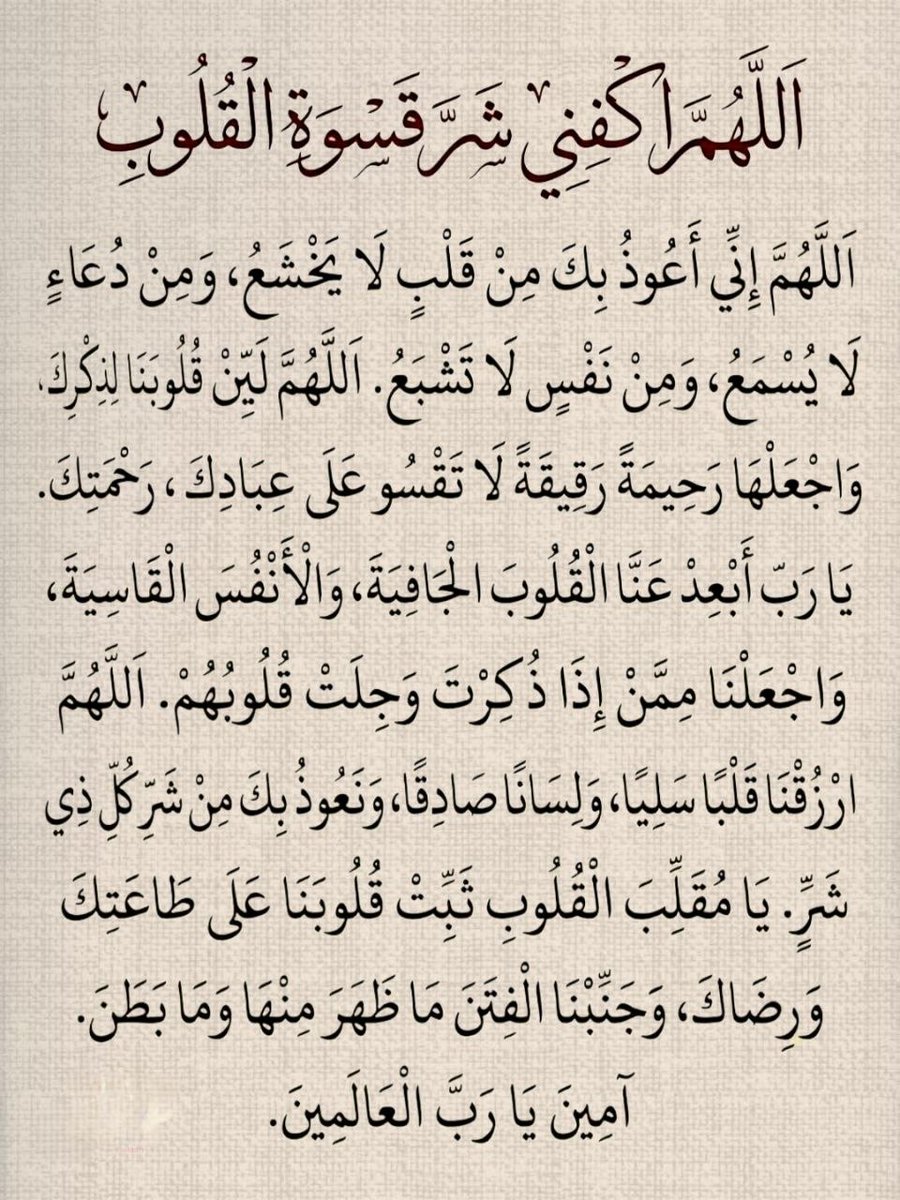 اَللَّهُمَّ اكْفِنِي شَرَّ قَسْوَةِ الْقُلُوبِ
اَللَّهُمَّ إِنِّي أَعُوذُ بِكَ مِنْ قَلْبٍ لَا يَخْشَعُ، وَمِنْ دُعَاءٍ
لَا يُسْمَعُ، وَمِنْ نَفْسٍ لَا تَشْبَعُ. اَللَّهُمَّ لَيِّنْ قُلُوبَنَا لِذِكْرِكَ،
وَاجْعَلْهَا رَحِيمَةً رَقِيقَةً لَا تَقْسُو عَلَى عِبَادِكَ، رَحْمَتِكَ.
يَا رَبّ أَبْعِدْ عَنَّا الْقُلُوبَ الْجَافِيَةَ، وَالْأَنْفُسَ الْقَاسِيَةَ،
وَاجْعَلْنَا مِمَّنْ إِذَا ذُكِرْتَ وَجِلَتْ قُلُوبُهُمْ. اَللَّهُمَّ
ارْزُقْنَا قَلْبًا سَلِيًا، وَلِسَانًا صَادِقًا، وَنَعُوذُ بِكَ مِنْ شَرِّ كُلِّ ذِي
شَرٍّ. يَا مُقَلِّبَ الْقُلُوبِ ثَبِّتْ قُلُوبَنَا عَلَى طَاعَتِكَ
وَرِضَاكَ، وَجَنِّبْنَا الْفِتَنَ مَا ظَهَرَ مِنْهَا وَمَا بَطَنَ.
آمِينَ يَا رَبَّ الْعَالَمِينَ.